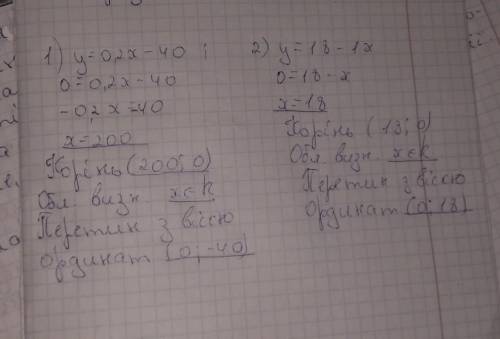 1) y=0,2x-40;
0=0,2x-40
-0,2x=40
x=200
Корінь (200; 0)
Обл. визн x∈R
Перетин з віссю
ординат (0; -40)
2) y=18-1x
0=18-x
x=18
Корінь (18; 0)
Обл. визн x∈R
Перетин з віссю
ординат (0; 18)